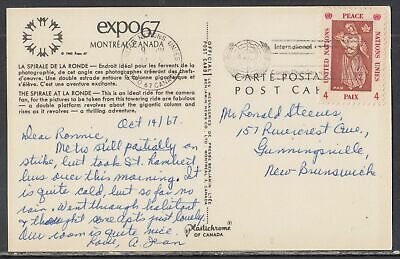 expo67
MONTRÉAL, CANADA
© 1963 Expo 67
LA SPIRALE DE LA RONDE — Endroit idéal pour les fervents de la
photographie, de cet angle ces photographies créeront des chefs-
d'oeuvre. Vous pouvez apercevoir les tours qui montent en spirale
s'élève. C'est une aventure excitante.
THE SPIRALE AT LA RONDE — This is an ideal ride for the camera
fan, for the pictures to be taken from this towering ride are fabulous
— a double platform revolves about the gigantic column and rises
as a thrilling adventure.
NATIONS UNIES
International
CARTE POSTALE
POST CARD
UNITED NATIONS
PEACE
NATIONS UNIES
4 PAIX 4
Oct 14/67.
Dear Ronnie,
Metro still partially on
strike, but took St. Lambert
bus over this morning. It
is quite cold, but so far no
rain. Went through habitat
& thought some apts just lovely
Our room is quite nice.
Love, A. Jean
Mr Ronald Steeves,
157 Rivercrest Ave.,
Gunningsville
New Brunswick
Plastichrome
OF CANADA